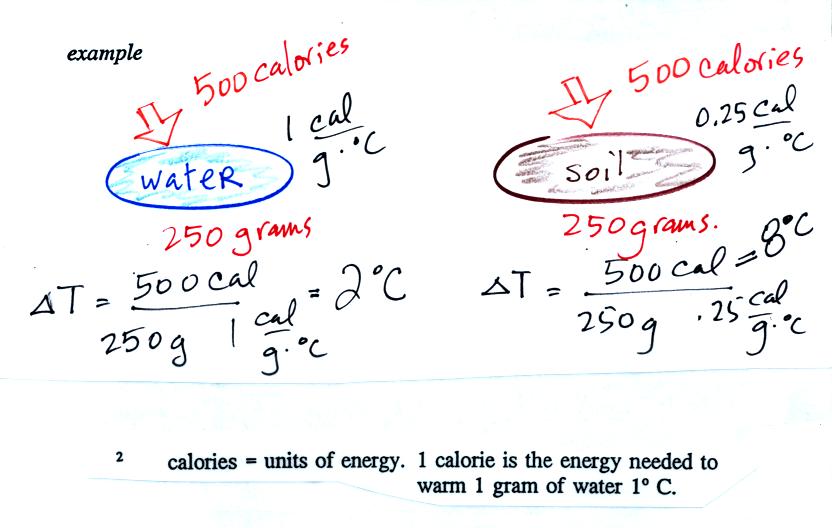 example
500 calories
1 cal
g · °C
water
250 grams
ΔT = 500 cal = 2°C
250 g 1 cal
g · °C
500 calories
0.25 cal
g · °C
soil
250 grams.
ΔT = 500 cal = 8°C
250 g .25 cal
g · °C
2 calories = units of energy. 1 calorie is the energy needed to
warm 1 gram of water 1° C.